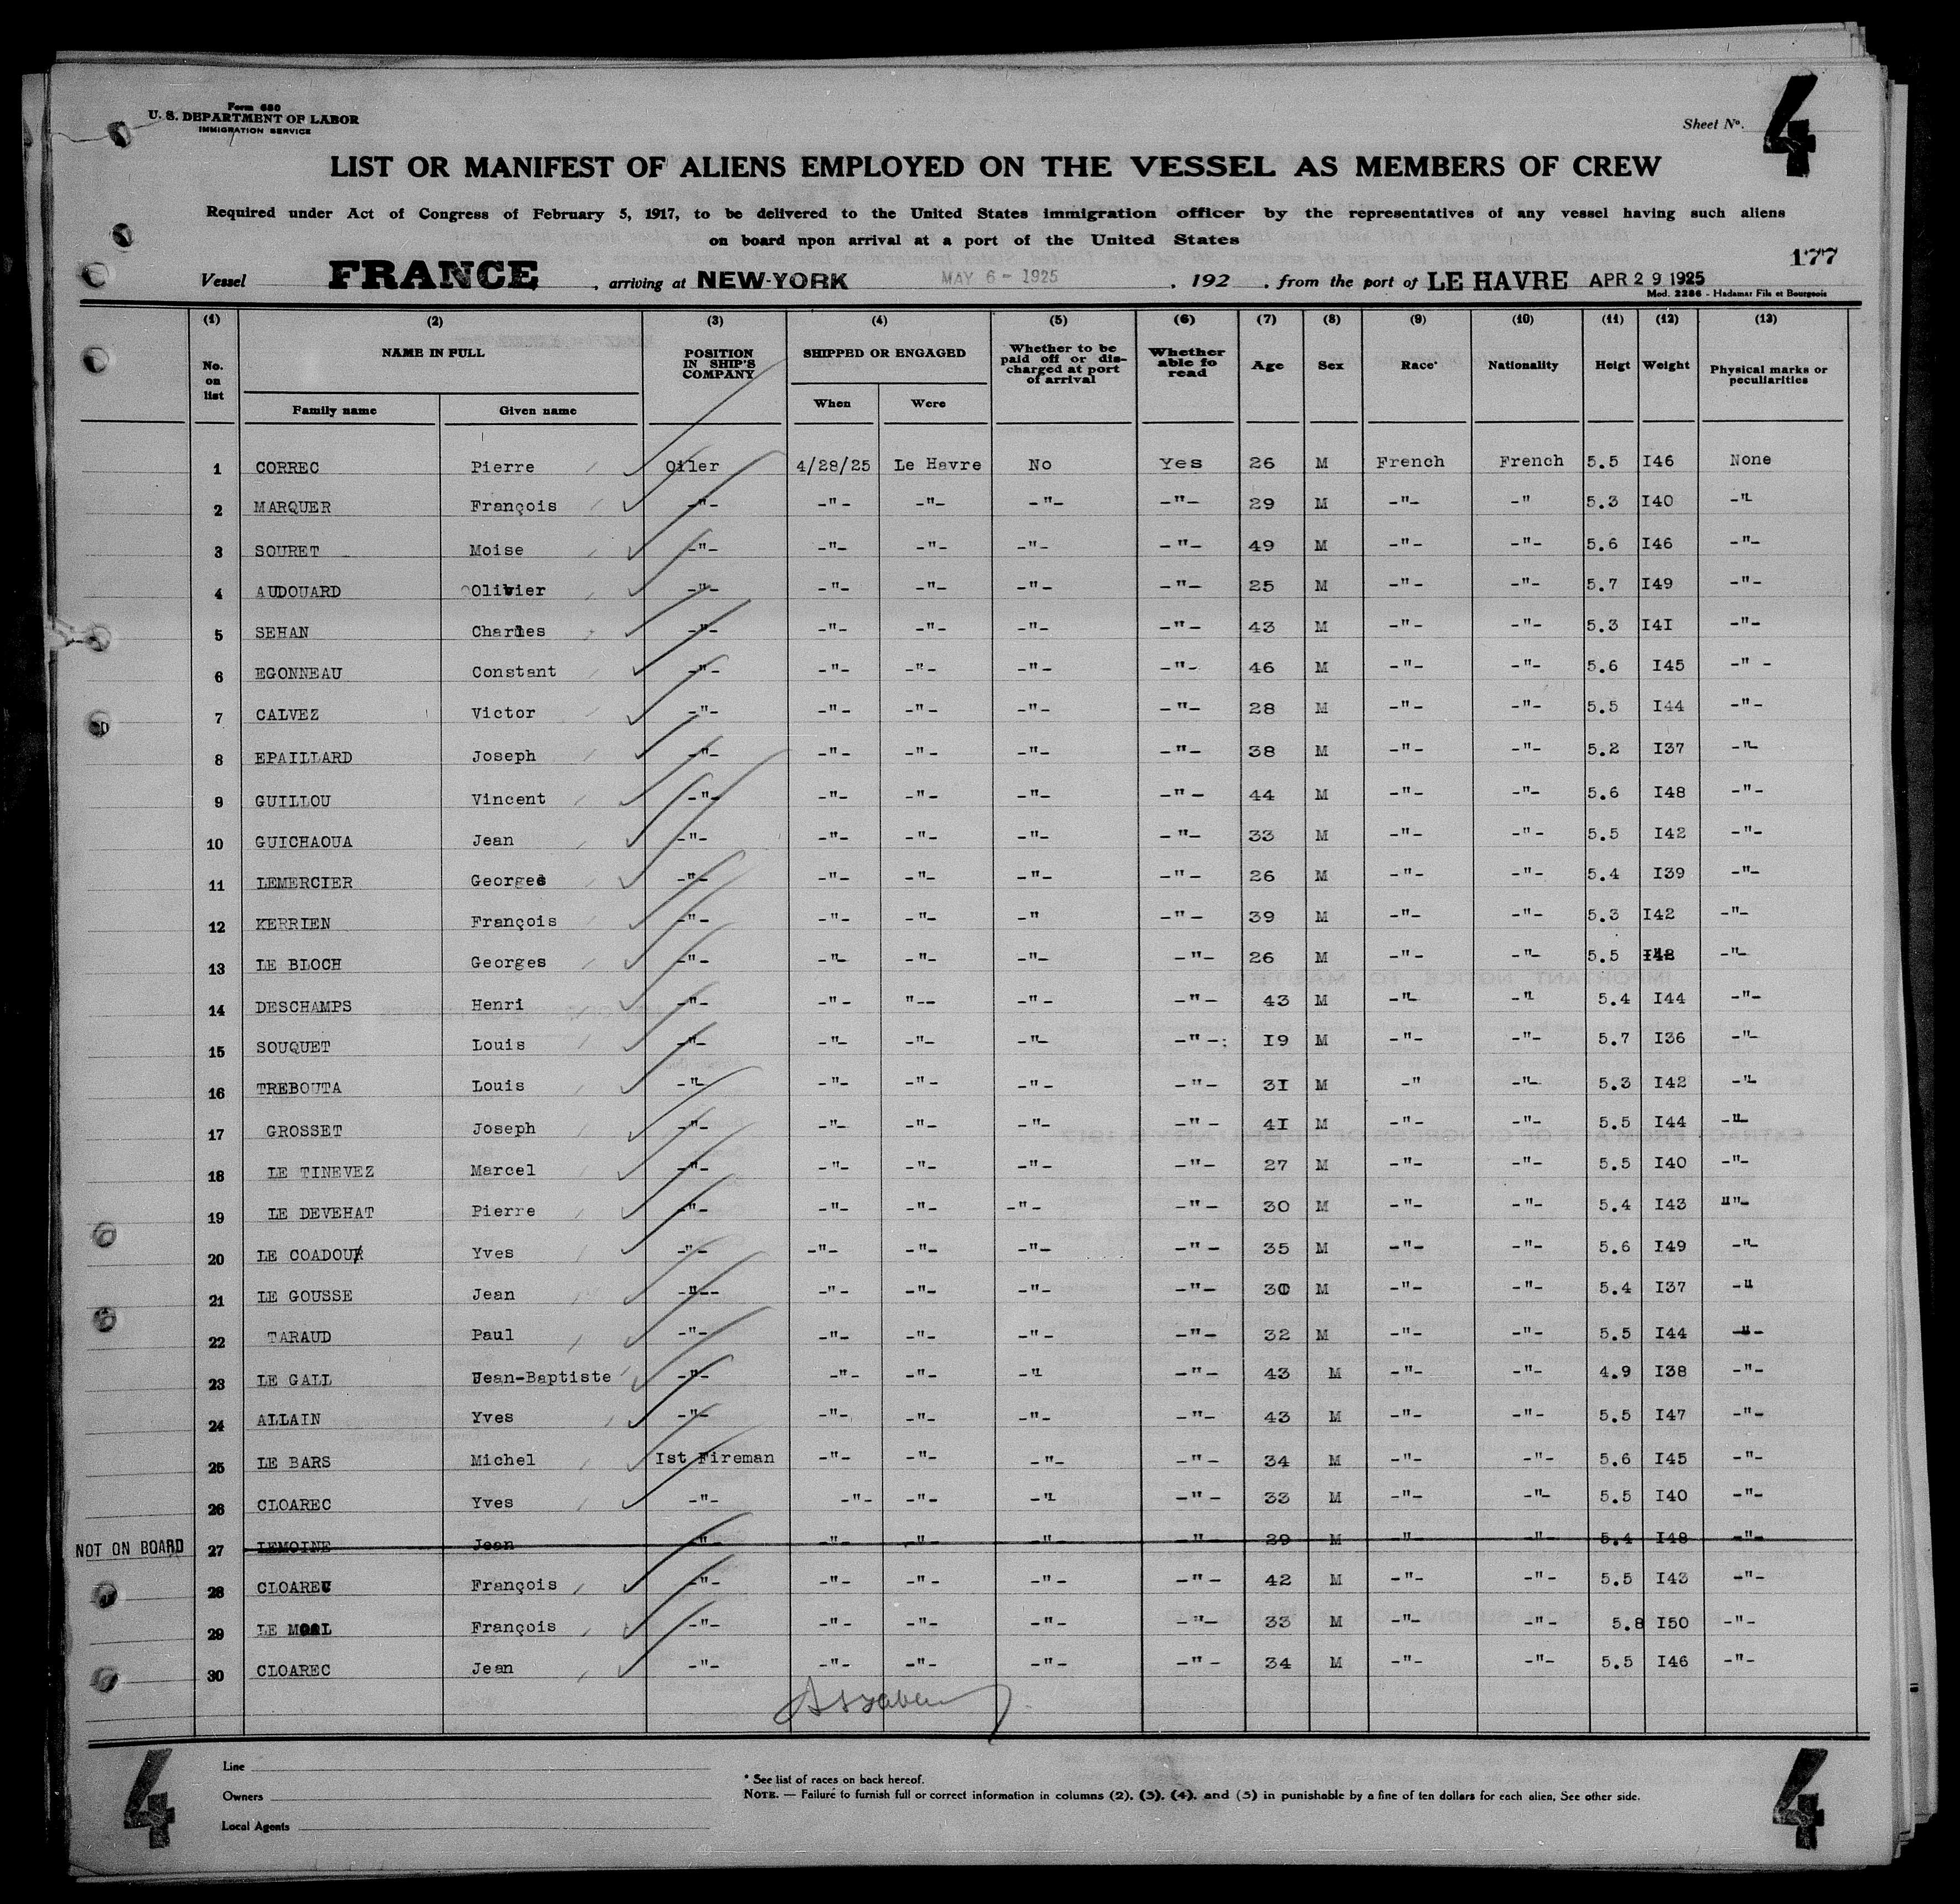 Form 680
U. S. DEPARTMENT OF LABOR
IMMIGRATION SERVICE
Sheet No. 4
LIST OR MANIFEST OF ALIENS EMPLOYED ON THE VESSEL AS MEMBERS OF CREW
Required under Act of Congress of February 5, 1917, to be delivered to the United States immigration officer by the representatives of any vessel having such aliens
on board upon arrival at a port of the United States
177
Vessel FRANCE, arriving at NEW-YORK MAY 6 - 1925, 192 , from the port of LE HAVRE APR 29 1925
Mod. 2286 - Hadamar Fils et Bourgeois
(1) (2) (3) (4) (5) (6) (7) (8) (9) (10) (11) (12) (13)
No. on list NAME IN FULL POSITION IN SHIP'S COMPANY SHIPPED OR ENGAGED Whether to be paid off or discharged at port of arrival Whether able fo read Age Sex Race* Nationality Heigt Weight Physical marks or peculiarities
Family name Given name When Were
1 CORREC Pierre Oiler 4/28/25 Le Havre No Yes 26 M French French 5.5 I46 None
2 MARQUER François -"- -"- -"- -"- -"- 29 M -"- -" 5.3 I40 -"-
3 SOURET Moise -"- -"- -"- -"- -"- 49 M -"- -"- 5.6 I46 -"-
4 AUDOUARD Olivier -"- -"- -"- -"- -"- 25 M -"- -"- 5.7 I49 -"-
5 SEHAN Charles -"- -"- -"- -"- -"- 43 M -"- -"- 5.3 I4I -"-
6 EGONNEAU Constant -"- -"- -"- -"- -"- 46 M -"- -"- 5.6 I45 -"-
7 CALVEZ Victor -"- -"- -"- -"- -"- 28 M -"- -"- 5.5 I44 -"-
8 EPAILLARD Joseph -"- -"- -"- -"- -"- 38 M -"- -"- 5.2 I37 -"-
9 GUILLOU Vincent -"- -"- -"- -"- -"- 44 M -"- -"- 5.6 I48 -"-
10 GUICHAOUA Jean -"- -"- -"- -"- -"- 33 M -"- -"- 5.5 I42 -"-
11 LEMERCIER Georges -"- -"- -"- -"- -"- 26 M -"- -"- 5.4 I39 -"-
12 KERRIEN François -"- -"- -"- -" -"- 39 M -"- -"- 5.3 I42 -"-
13 LE BLOCH Georges -"- -"- -"- -"- -"- 26 M -"- -"- 5.5 I42 -"-
14 DESCHAMPS Henri -"- -"- "-- -"- -"- 43 M -"- -"- 5.4 I44 -"-
15 SOUQUET Louis -"- -"- -"- -"- -"-: I9 M -"- -"- 5.7 I36 -"-
16 TREBOUTA Louis -"- -"- -"- -"- -"- 3I M -" -"- 5.3 I42 -"-
17 GROSSET Joseph -"- -"- -"- -"- -"- 4I M -"- -"- 5.5 I44 -"-
18 LE TINEVEZ Marcel -"- -"- -"- -"- -"- 27 M -"- -"- 5.5 I40 -"-
19 LE DEVEHAT Pierre -"- -"- -"- -"- -"- 30 M -"- -"- 5.4 I43 ""-
20 LE COADOU Yves -"- -"- -"- -"- -"- 35 M -"- -"- 5.6 I49 -"-
21 LE GOUSSE Jean -"-- -"- -"- -"- -"- 30 M -"- -"- 5.4 I37 -"
22 TARAUD Paul -"- -"- -"- -"- -"- 32 M -"- -"- 5.5 I44 -"-
23 LE GALL Jean-Baptiste -"- -"- -"- -" -"- 43 M -"- -"- 4.9 I38 -"-
24 ALLAIN Yves -"- -"- -"- -"- -"- 43 M -"- -"- 5.5 I47 -"-
25 LE BARS Michel Ist Fireman -"- -"- -"- -"- 34 M -"- -"- 5.6 I45 -"-
26 CLOAREC Yves -"- -"- -"- -"- -"- 33 M -"- -"- 5.5 I40 -"-
NOT ON BOARD 27 LEMOINE Jean -"- -"- -"- -"- -"- 29 M -"- -"- 5.4 I48 -"-
28 CLOAREC François -"- -"- -"- -"- -"- 42 M -"- -"- 5.5 I43 -"-
29 LE MOAL François -"- -"- -"- -"- -"- 33 M -"- -"- 5.8 I50 -"-
30 CLOAREC Jean -"- -"- -"- -"- -"- 34 M -"- -"- 5.5 I46 -"-
4 4
Line
Owners
Local Agents
* See list of races on back hereof.
NOTE. — Failure to furnish full or correct information in columns (2), (3), (4), and (5) in punishable by a fine of ten dollars for each alien, See other side.